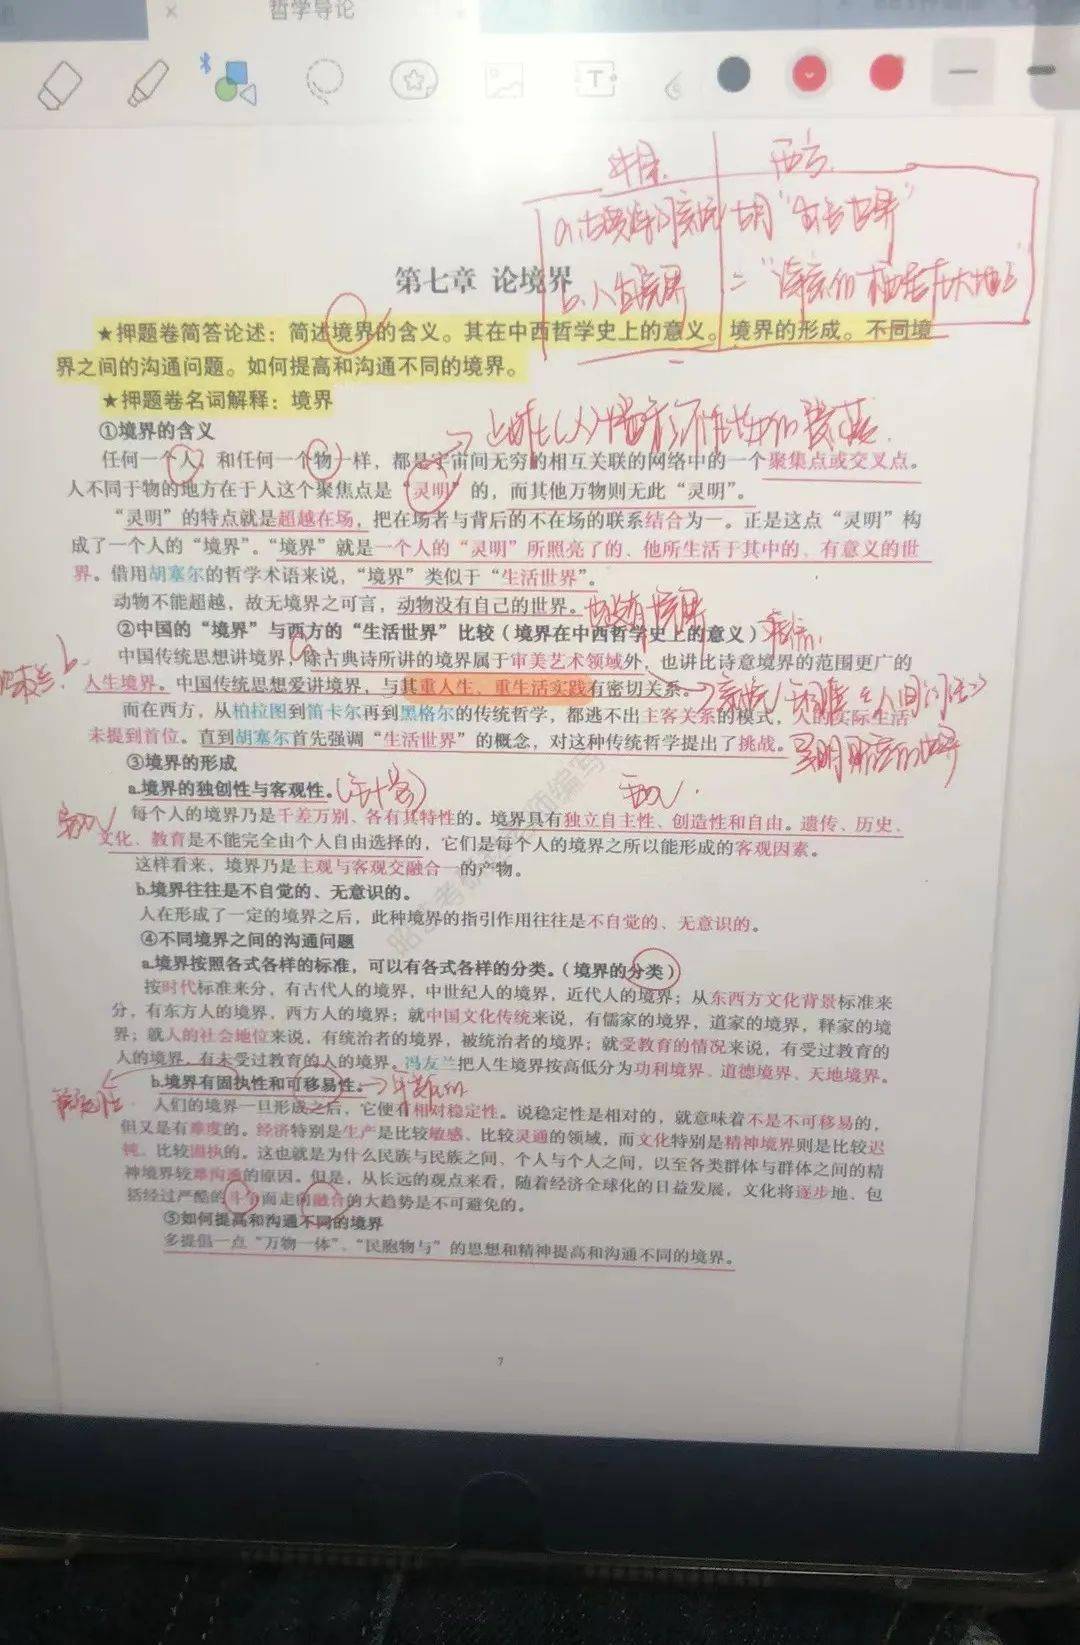 哲学导论
中国 西方
b.人生境界
第七章 论境界
★押题卷简答论述：简述境界的含义。其在中西哲学史上的意义。境界的形成。不同境
界之间的沟通问题。如何提高和沟通不同的境界。
★押题卷名词解释：境界
①境界的含义
任何一个人，和任何一个物一样，都是宇宙间无穷的相互关联的网络中的一个聚集点或交叉点。
人不同于物的地方在于人这个聚焦点是“灵明”的，而其他万物则无此“灵明”。
“灵明”的特点就是超越在场，把在场者与背后的不在场的联系结合为一。正是这点“灵明”构
成了一个人的“境界”。“境界”就是一个人的“灵明”所照亮了的、他所生活于其中的、有意义的世
界。借用胡塞尔的哲学术语来说，“境界”类似于“生活世界”。
动物不能超越，故无境界之可言，动物没有自己的世界。
②中国的“境界”与西方的“生活世界”比较（境界在中西哲学史上的意义）
中国传统思想讲境界，除古典诗所讲的境界属于审美艺术领域外，也讲比诗意境界的范围更广的
人生境界。中国传统思想爱讲境界，与其重人生、重生活实践有密切关系。
而在西方，从柏拉图到笛卡尔再到黑格尔的传统哲学，都逃不出主客关系的模式，人的实际生活
未提到首位。直到胡塞尔首先强调“生活世界”的概念，对这种传统哲学提出了挑战。
③境界的形成
a.境界的独创性与客观性。
每个人的境界乃是千差万别、各有其特性的。境界具有独立自主性、创造性和自由。遗传、历史、
文化、教育是不能完全由个人自由选择的，它们是每个人的境界之所以能形成的客观因素。
这样看来，境界乃是主观与客观交融合一的产物。
b.境界往往是不自觉的、无意识的。
人在形成了一定的境界之后，此种境界的指引作用往往是不自觉的、无意识的。
④不同境界之间的沟通问题
a.境界按照各式各样的标准，可以有各式各样的分类。（境界的分类）
按时代标准来分，有古代人的境界，中世纪人的境界，近代人的境界；从东西方文化背景标准来
分，有东方人的境界，西方人的境界；就中国文化传统来说，有儒家的境界，道家的境界，释家的境
界；就人的社会地位来说，有统治者的境界，被统治者的境界；就受教育的情况来说，有受过教育的
人的境界，有未受过教育的人的境界。冯友兰把人生境界按高低分为功利境界、道德境界、天地境界。
b.境界有固执性和可移易性。
人们的境界一旦形成之后，它便有相对稳定性。说稳定性是相对的，就意味着不是不可移易的，
但又是有难度的。经济特别是生产是比较敏感、比较灵通的领域，而文化特别是精神境界则是比较迟
钝、比较固执的。这也就是为什么民族与民族之间、个人与个人之间，以至各类群体与群体之间的精
神境界较难沟通的原因。但是，从长远的观点来看，随着经济全球化的日益发展，文化将逐步地、包
括经过严酷的斗争而走向融合的大趋势是不可避免的。
⑤如何提高和沟通不同的境界
多提倡一点“万物一体”、“民胞物与”的思想和精神提高和沟通不同的境界。
7